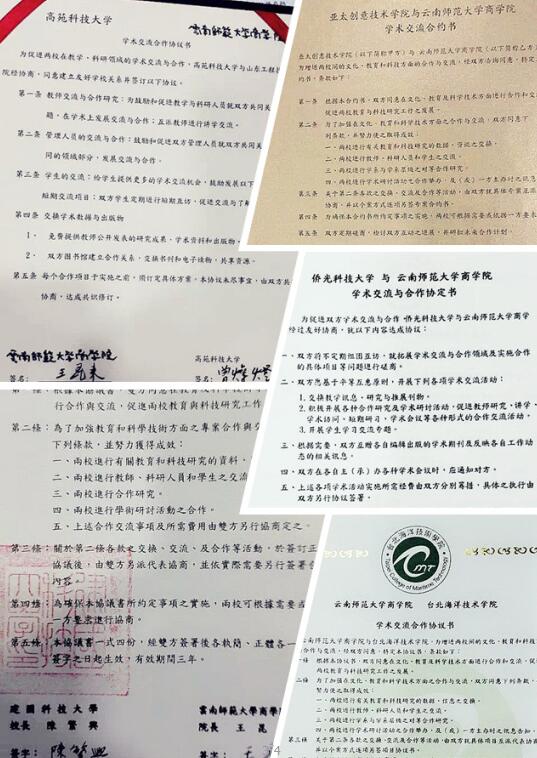 高苑科技大学
雲南師範大學商學院
学术交流合作协议书
为促进两校在教学、科研领域的学术交流与合作,高苑科技大学与山东工程
院经协商,同意建立友好学校关系并签订以下协议。
第一条 教师交流与合作研究:为鼓励和促进教学与科研人员就双方共同关
题,在学术上发展交流与合作;互派教师进行讲学交流。
第二条 管理人员的交流与合作:鼓励和促进双方管理人员就双方共同关
同的领域部分,发展交流与合作。
第三条 学生的交流:给学生提供更多的学术交流机会,鼓励发展以下
短期交流项目:双方学生定期进行短期互访,促进交流与了解
第四条 交换学术数据与出版物
1. 免费提供教师公开发表的研究成果、学术资料和出版物。
2. 双方图书馆建立合作关系,交换书刊和电子读物,共享资源。
第五条 每个合作项目于实施之前,须订定具体方案。本协议未尽事宜,由双方共
协商,达成共识修订。
雲南師範大學商學院
高苑科技大学
签名:
签名:
亚太创意技术学院与云南师范大学商学院
学术交流合约书
亚太创意技术学院(以下简称甲方)与 云南师范大学商学院(以下简称乙方)
为增进两校间的文化、教育和科技方面的合作与交流,经双方洽询同意,特定
约书,条款如下:
第一条 根据本合约书,双方同意在文化、教育及科学技术方面进行合作和交
促进两校教育与科技研究工作之发展。
第二条 为了加强在文化、教育和科学技术方面之合作与交流,双方同意下
列条款,并努力使之取得成效:
一、两校进行有关教育和科技研究的数据、资讯之交换。
二、两校进行教师、科研人员和学生之交流。
三、两校进行学系与学系层级之对等合作研究。
四、两校进行学术研讨活动之合作举办,及(或)一方主办时之讯息
第三条 关于第二条各款之交换、交流及合作等活动,由双方就具体项目专案正
协商,并以个案方式逐项另签专案合约书。
第四条 为确保本合约书所约定事项之实施,两校可根据需要或依据一方要求
第五条 双方定期磋商,检讨双方互动之进展,并研拟未来合作计划。
侨光科技大学 与 云南师范大学商学院
学术交流与合作协定书
为促进双方学术交流与合作,侨光科技大学与云南师范大学商学
经过友好协商,就以下内容达成协议:
一、双方将不定期组团互访,就拓展学术交流与合作领域及实施合作
的具体项目等问题进行磋商。
二、双方愿基于平等互惠原则,开展下列各项学术交流活动:
1.交换教学讯息、研究与推展刊物。
2.积极开展各种合作研究及学术研讨活动,促进教师研究、讲学、
学术访问、短期研习、学术会议等各种形式的合作交流活动。
3.开展学生学习交流专题。
三、根据需要,双方互赠各自编辑出版的学术期刊及反映各自工作动
态的相关讯息。
四、双方在各自主(承)办各种学术会议时,应通知对方。
五、上述各项学术活动实施所需经费由双方分别筹措,具体之执行由
双方另行协议签署。
行合作與交流,促進兩校教育與科技研究工作
第二條:為了加強教育和科學技術方面之專案合作與交
下列條款,並努力獲得成效:
一、兩校進行有關教育和科技研究的資料、
二、兩校進行教師、科研人員和學生之交流
三、兩校進行合作研究。
四、兩校進行學術研討活動之合作。
五、上述合作交流事項及所需費用由雙方另行協商定之。
第三條:關於第二條各款之交換、交流、及合作等活動,於簽訂正
協議後,由雙方另派代表協商,並依實際需要另行簽署
內容。
第四條:為確保本協議書所約定事項之實施,兩校可根據需要
一方要求進行協商。
第五條:本協議書一式四份,經雙方簽署後各執簡、正體各一
簽字之日起生效,有效期間三年。
建國科技大學
校長 陳繁興
簽字:陳繁興
雲南師範大學商學
院長 王 昆
簽字:
台北海洋技術學院
Taipei College of Maritime Technology
云南师范大学商学院 台北海洋技术学院
学术交流合作协议书
云南师范大学商学院与台北海洋技术学院,为增进两校间的文化、教育和科技
合作与交流,经双方同意,特定本协议书,条款如下:
根据本协议书,双方同意在文化、教育及科学技术方面进行合作和交流,促
两校教育与科技研究工作之发展。
为了加强在文化、教育和科学技术方面之合作与交流,双方同意下列条款,
努力使之取得成效:
一、两校进行有关教育和科技研究的数据、信息之交换。
二、两校进行教师、科研人员和学生之交流。
三、两校进行学系与学系层级之对等合作研究。
四、两校进行学术研讨活动之合作举办,及(或)一方主办时之讯息告知。
第三条 关于第二条各款之交换、交流及合作等活动,由双方就具体项目互派代表协
并以个案方式逐项另签项目协议书。
34